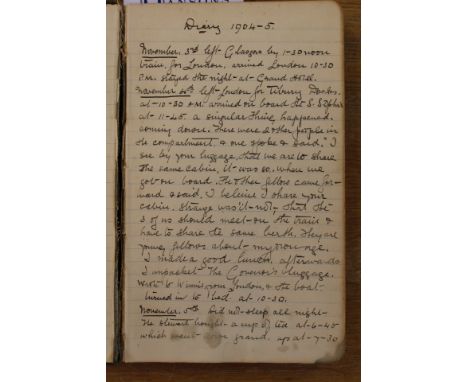 Diary 1904-5.
November. 3rd left Glasgow by 1-30 noon
train, for London, arrived London 10-30
P.M. stayed the night at Grand Hotel.
November 4th left London for Tilbury Docks.
at 10-30 A.M. arrived on board the S.S.
at 11-45. a singular thing happened.
coming down. There were 2 other people in
the compartment, & one spoke & said. "I
see by your luggage, that we are to share
the same cabin, it was so, when we
got on board. The other fellow came for-
ward & said, I believe I share your
cabin. Strange was'it-not, that the
3 of us should meet on the train &
have to share the same berth. They are
young fellows about my own age.
I made a good lunch, afterwards
I unpacked the Governor's luggage.
Wrote to from London, & the boat
turned in to bed at 10-30.
November. 5th did not sleep all night-
the stewart bought a cup of tea at 6-45
which went down grand. up at 7-30